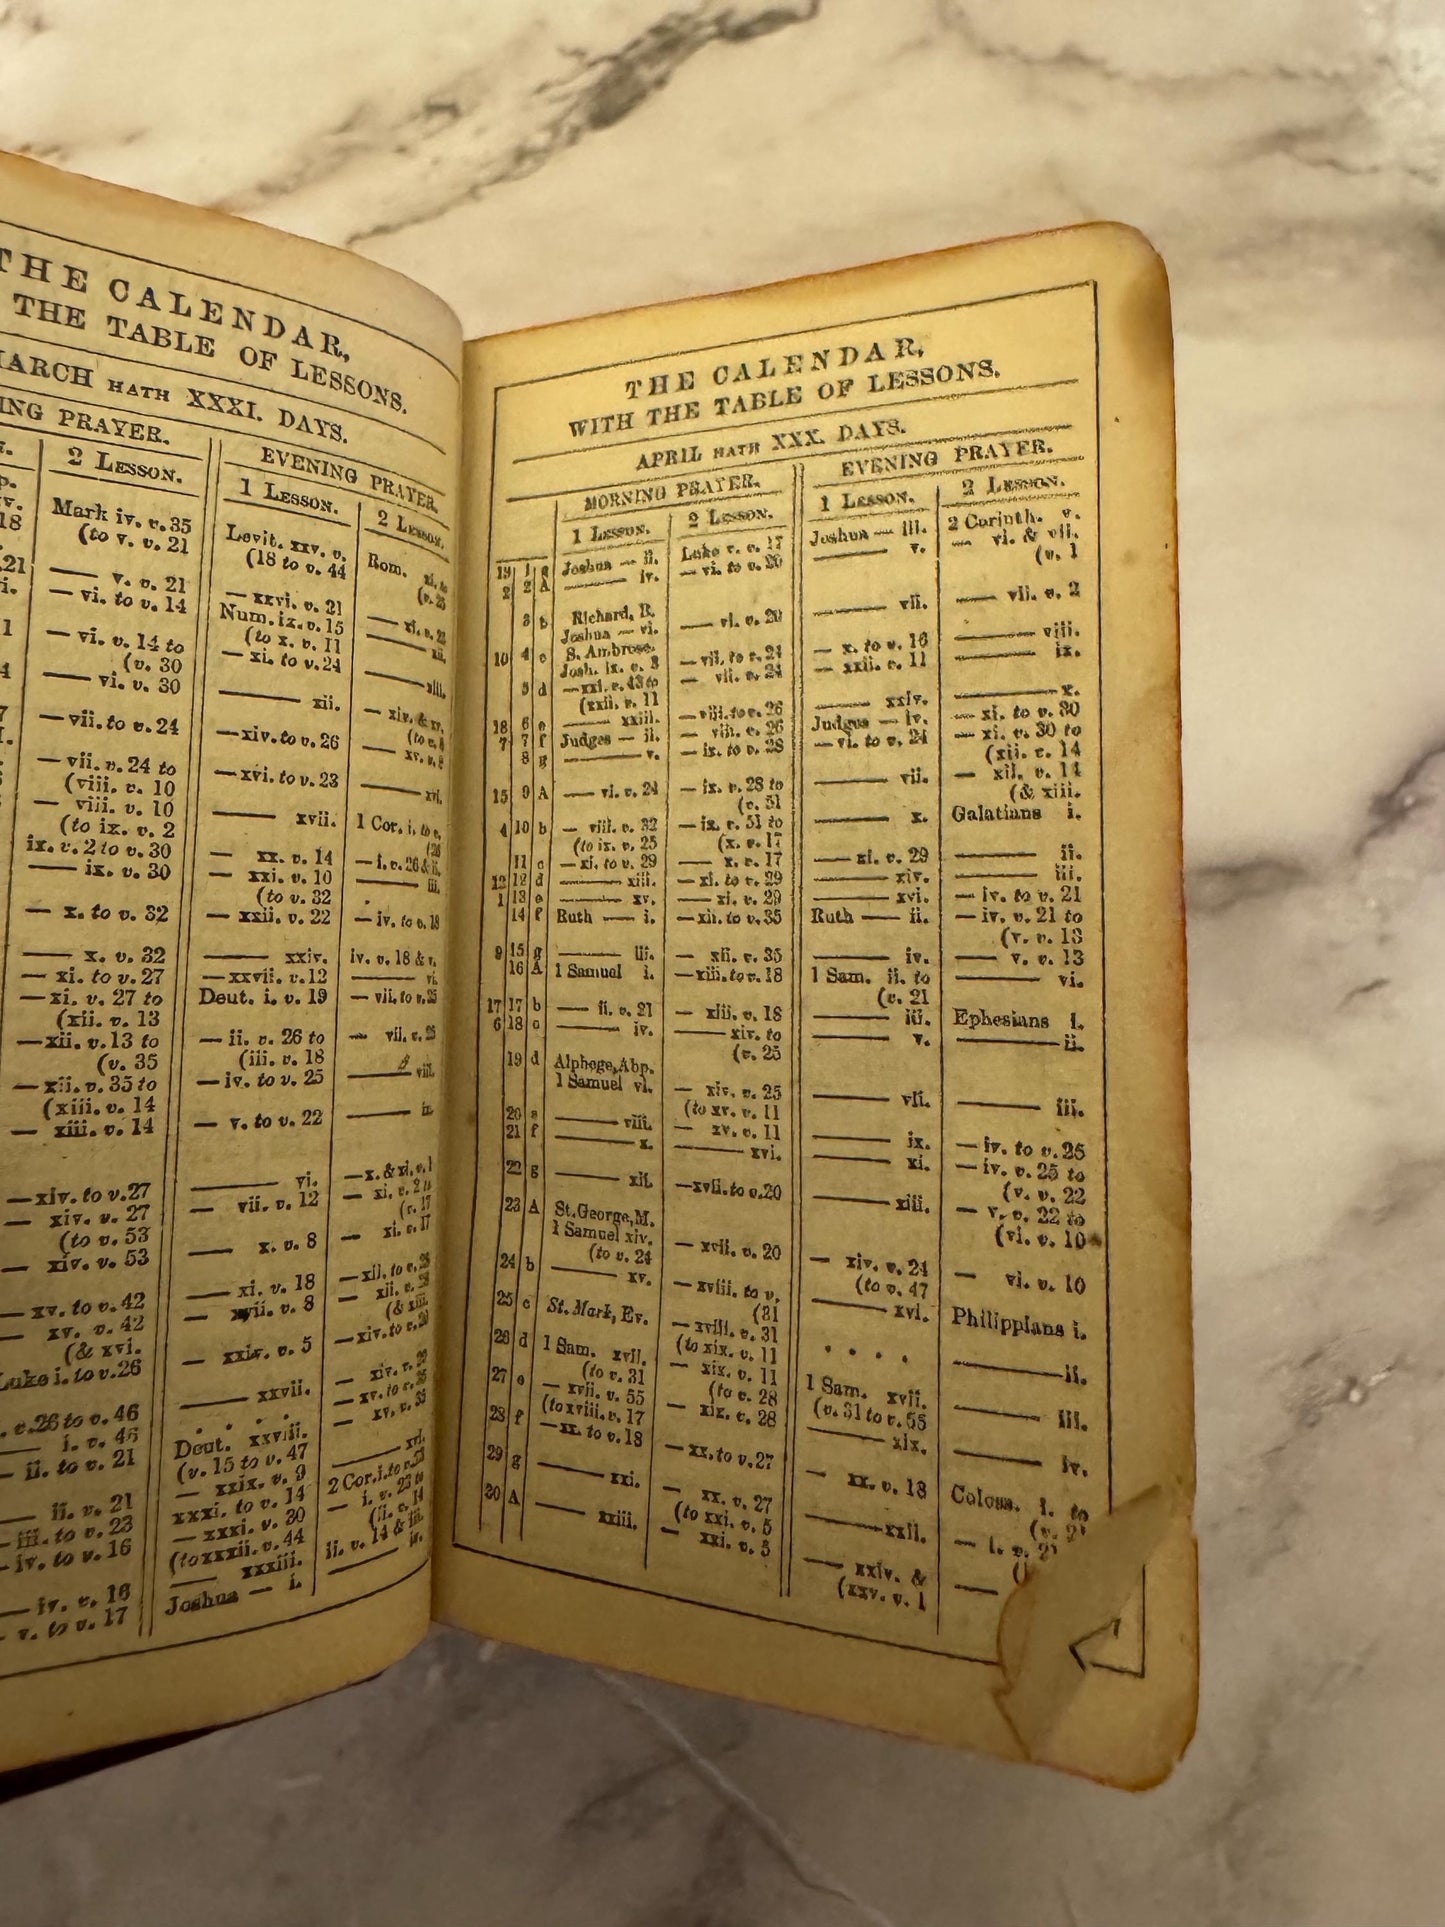 THE CALENDAR,
THE TABLE OF LESSONS.
MARCH HATH XXXI. DAYS.
PRAYER.
EVENING PRAYER.
2 LESSON.
1 LESSON.
2 LESSON.
Mark iv. v.35
(to v. v. 21
— v. v. 21
— vi. to v. 14
— vi. v. 14 to
(v. 30
— vi. v. 30
— vii. to v. 24
— vii. v. 24 to
(viii. v. 10
— viii. v. 10
(to ix. v. 2
ix. v. 2 to v. 30
— ix. v. 30
— x. to v. 32
— x. v. 32
— xi. to v. 27
— xi. v. 27 to
(xii. v. 13
— xii. v. 13 to
(v. 35
— xii. v. 35 to
(xiii. v. 14
— xiii. v. 14
— xiv. to v. 27
— xiv. v. 27
(to v. 53
— xiv. v. 53
— xv. to v. 42
— xv. v. 42
(& xvi.
Luke i. to v. 26
i. v. 26 to v. 46
— i. v. 46
— ii. to v. 21
— ii. v. 21
— iii. to v. 23
— iv. to v. 16
— iv. v. 16
— v. to v. 17
Levit. xxv. v.
(18 to v. 44
— xxvi. v. 21
Num. ix. v. 15
(to x. v. 11
— xi. to v. 24
— xii.
— xiv. to v. 26
— xvi. to v. 23
— xvii.
— xx. v. 14
— xxi. v. 10
(to v. 32
— xxii. v. 22
— xxiv.
— xxvii. v. 12
Deut. i. v. 19
— ii. v. 26 to
(iii. v. 18
— iv. to v. 25
— v. to v. 22
— vi.
— vii. v. 12
— x. v. 8
— xi. v. 18
— xvii. v. 8
— xxiv. v. 5
— xxvii.
. . . .
Deut. xxviii.
(v. 15 to v. 47
— xxix. v. 9
xxxi. to v. 14
— xxxi. v. 30
(to xxxii. v. 44
— xxxiii.
Joshua — i.
Rom.
— xiii.
— xiv. & xv.
— xvi.
1 Cor. i. to v.
(26
— i. v. 26 & ii.
— iii.
— iv. to v. 18
iv. v. 18 & v.
— vi.
— vii. to v. 25
— vii. v. 25
— viii.
— ix.
— x. & xi. v. 1
— xi. v. 2 to
(v. 17
— xi. v. 17
— xii. to v. 28
— xii. v. 28
(& xiii.
— xiv. to v. 20
— xiv. v. 20
— xvi.
2 Cor. i. to v. 23
— i. v. 23 to
(ii. v. 14
ii. v. 14 & iii.
— iv.
THE CALENDAR,
WITH THE TABLE OF LESSONS.
APRIL HATH XXX. DAYS.
MORNING PRAYER.
EVENING PRAYER.
1 LESSON.
2 LESSON.
1 LESSON.
2 LESSON.
13 1 g
2 2 A
3 b
10 4 c
5 d
18 6 e
7 7 f
8 g
15 9 A
4 10 b
11 c
12 12 d
1 13 e
14 f
9 15 g
16 A
17 17 b
6 18 c
19 d
20 e
21 f
22 g
23 A
24 b
25 c
26 d
27 e
28 f
29 g
30 A
Joshua — ii.
— iv.
Richard, B.
Joshua — vi.
S. Ambrose.
Josh. ix. v. 3
— xxi. v. 43 to
(xxii. v. 11
— xxiii.
Judges — ii.
— v.
— vi. v. 24
— viii. v. 32
(to ix. v. 25
— xi. to v. 29
— xiii.
— xv.
Ruth — i.
— iii.
1 Samuel i.
— ii. v. 21
— iv.
Alphege, Abp.
1 Samuel vi.
— viii.
— x.
— xii.
St. George, M.
1 Samuel xiv.
(to v. 24
— xv.
St. Mark, Ev.
1 Sam. xvii.
(to v. 31
— xvii. v. 55
(to xviii. v. 17
— xx. to v. 18
— xxi.
— xxiii.
Luke v. v. 17
— vi. to v. 20
— vi. v. 20
— vii. to v. 24
— vii. v. 24
— viii. to v. 26
— viii. v. 26
— ix. to v. 28
— ix. v. 28 to
(v. 51
— ix. v. 51 to
(x. v. 17
— x. v. 17
— xi. to v. 29
— xi. v. 29
— xii. to v. 35
— xii. v. 35
— xiii. to v. 18
— xiii. v. 18
— xiv. to
(v. 25
— xiv. v. 25
(to xv. v. 11
— xv. v. 11
— xvi.
— xvii. to v. 20
— xvii. v. 20
— xviii. to v.
(31
— xviii. v. 31
(to xix. v. 11
— xix. v. 11
(to v. 28
— xix. v. 28
— xx. to v. 27
— xx. v. 27
(to xxi. v. 5
— xxi. v. 5
Joshua — iii.
— v.
— vii.
— x. to v. 16
— xxii. v. 11
— xxiv.
Judges — iv.
— vi. to v. 24
— vii.
— x.
— xi. v. 29
— xiv.
— xvi.
Ruth — ii.
— iv.
1 Sam. ii. to
(v. 21
— iii.
— v.
— vii.
— ix.
— xi.
— xiii.
— xiv. v. 24
(to v. 47
— xvi.
. . . .
1 Sam. xvii.
(v. 31 to v. 55
— xix.
— xx. v. 18
— xxii.
— xxiv. &
(xxv. v. 1
2 Corinth. v.
— vi. & vii.
(v. 1
— vii. v. 2
— viii.
— ix.
— x.
— xi. to v. 30
— xi. v. 30 to
(xii. v. 14
— xii. v. 14
(& xiii.
Galatians i.
— ii.
— iii.
— iv. to v. 21
— iv. v. 21 to
(v. v. 13
— v. v. 13
— vi.
Ephesians i.
— ii.
— iii.
— iv. to v. 25
— iv. v. 25 to
(v. v. 22
— v. v. 22 to
(vi. v. 10
— vi. v. 10
Philippians i.
— ii.
— iii.
— iv.
Coloss. i. to
(v. 21
— i. v. 21